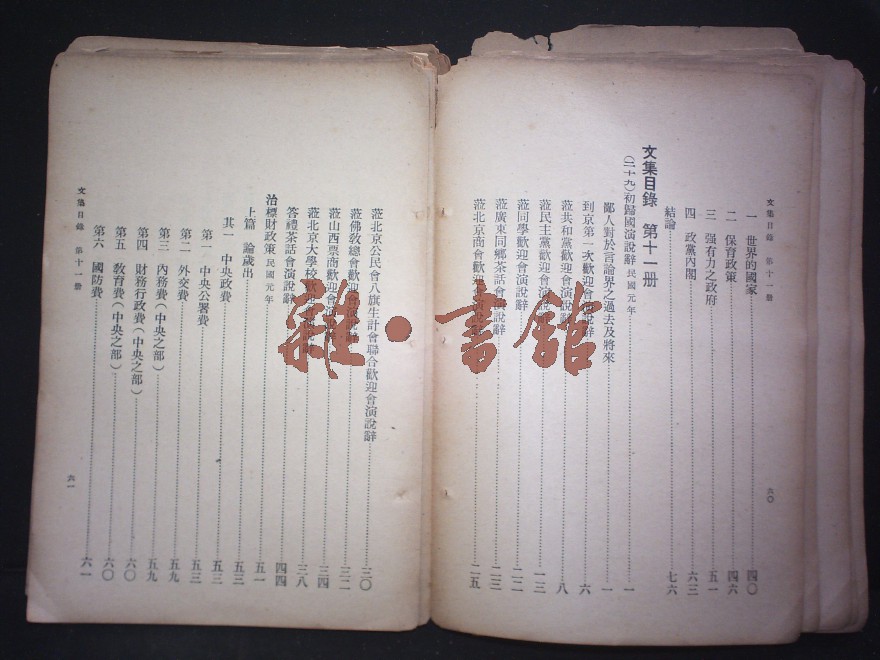 文集目錄　第十一册
一　世界的國家……四〇
二　保育政策……四六
三　强有力之政府……五一
四　政黨內閣……六三
結論……七六
文集目錄　第十一册
（二十九）初歸國演說辭　民國元年……一
鄙人對於言論界之過去及將來……一
到京第一次歡迎會演說辭……六
蒞共和黨歡迎會演說辭……八
蒞民主黨歡迎會演說辭……一三
蒞同學歡迎會演說辭……二二
蒞廣東同鄉茶話會演說辭……二三
蒞北京商會歡迎會演說辭……二五
六〇
蒞北京公民會八旗生計會聯合歡迎會演說辭……三〇
蒞佛敎總會歡迎會演說辭……三二
蒞山西票商歡迎會演說辭……三四
蒞北京大學校歡迎會演說辭……三八
答禮茶話會演說辭……四四
治標財政策　民國元年……五一
上篇　論歲出……五三
其一　中央政費……五三
第一　中央公署費……五三
第二　外交費……五九
第三　內務費（中央之部）……五九
第四　財務行政費（中央之部）……六〇
第五　敎育費（中央之部）……六〇
第六　國防費……六一
文集目錄　第十一册
六一
雜·書館